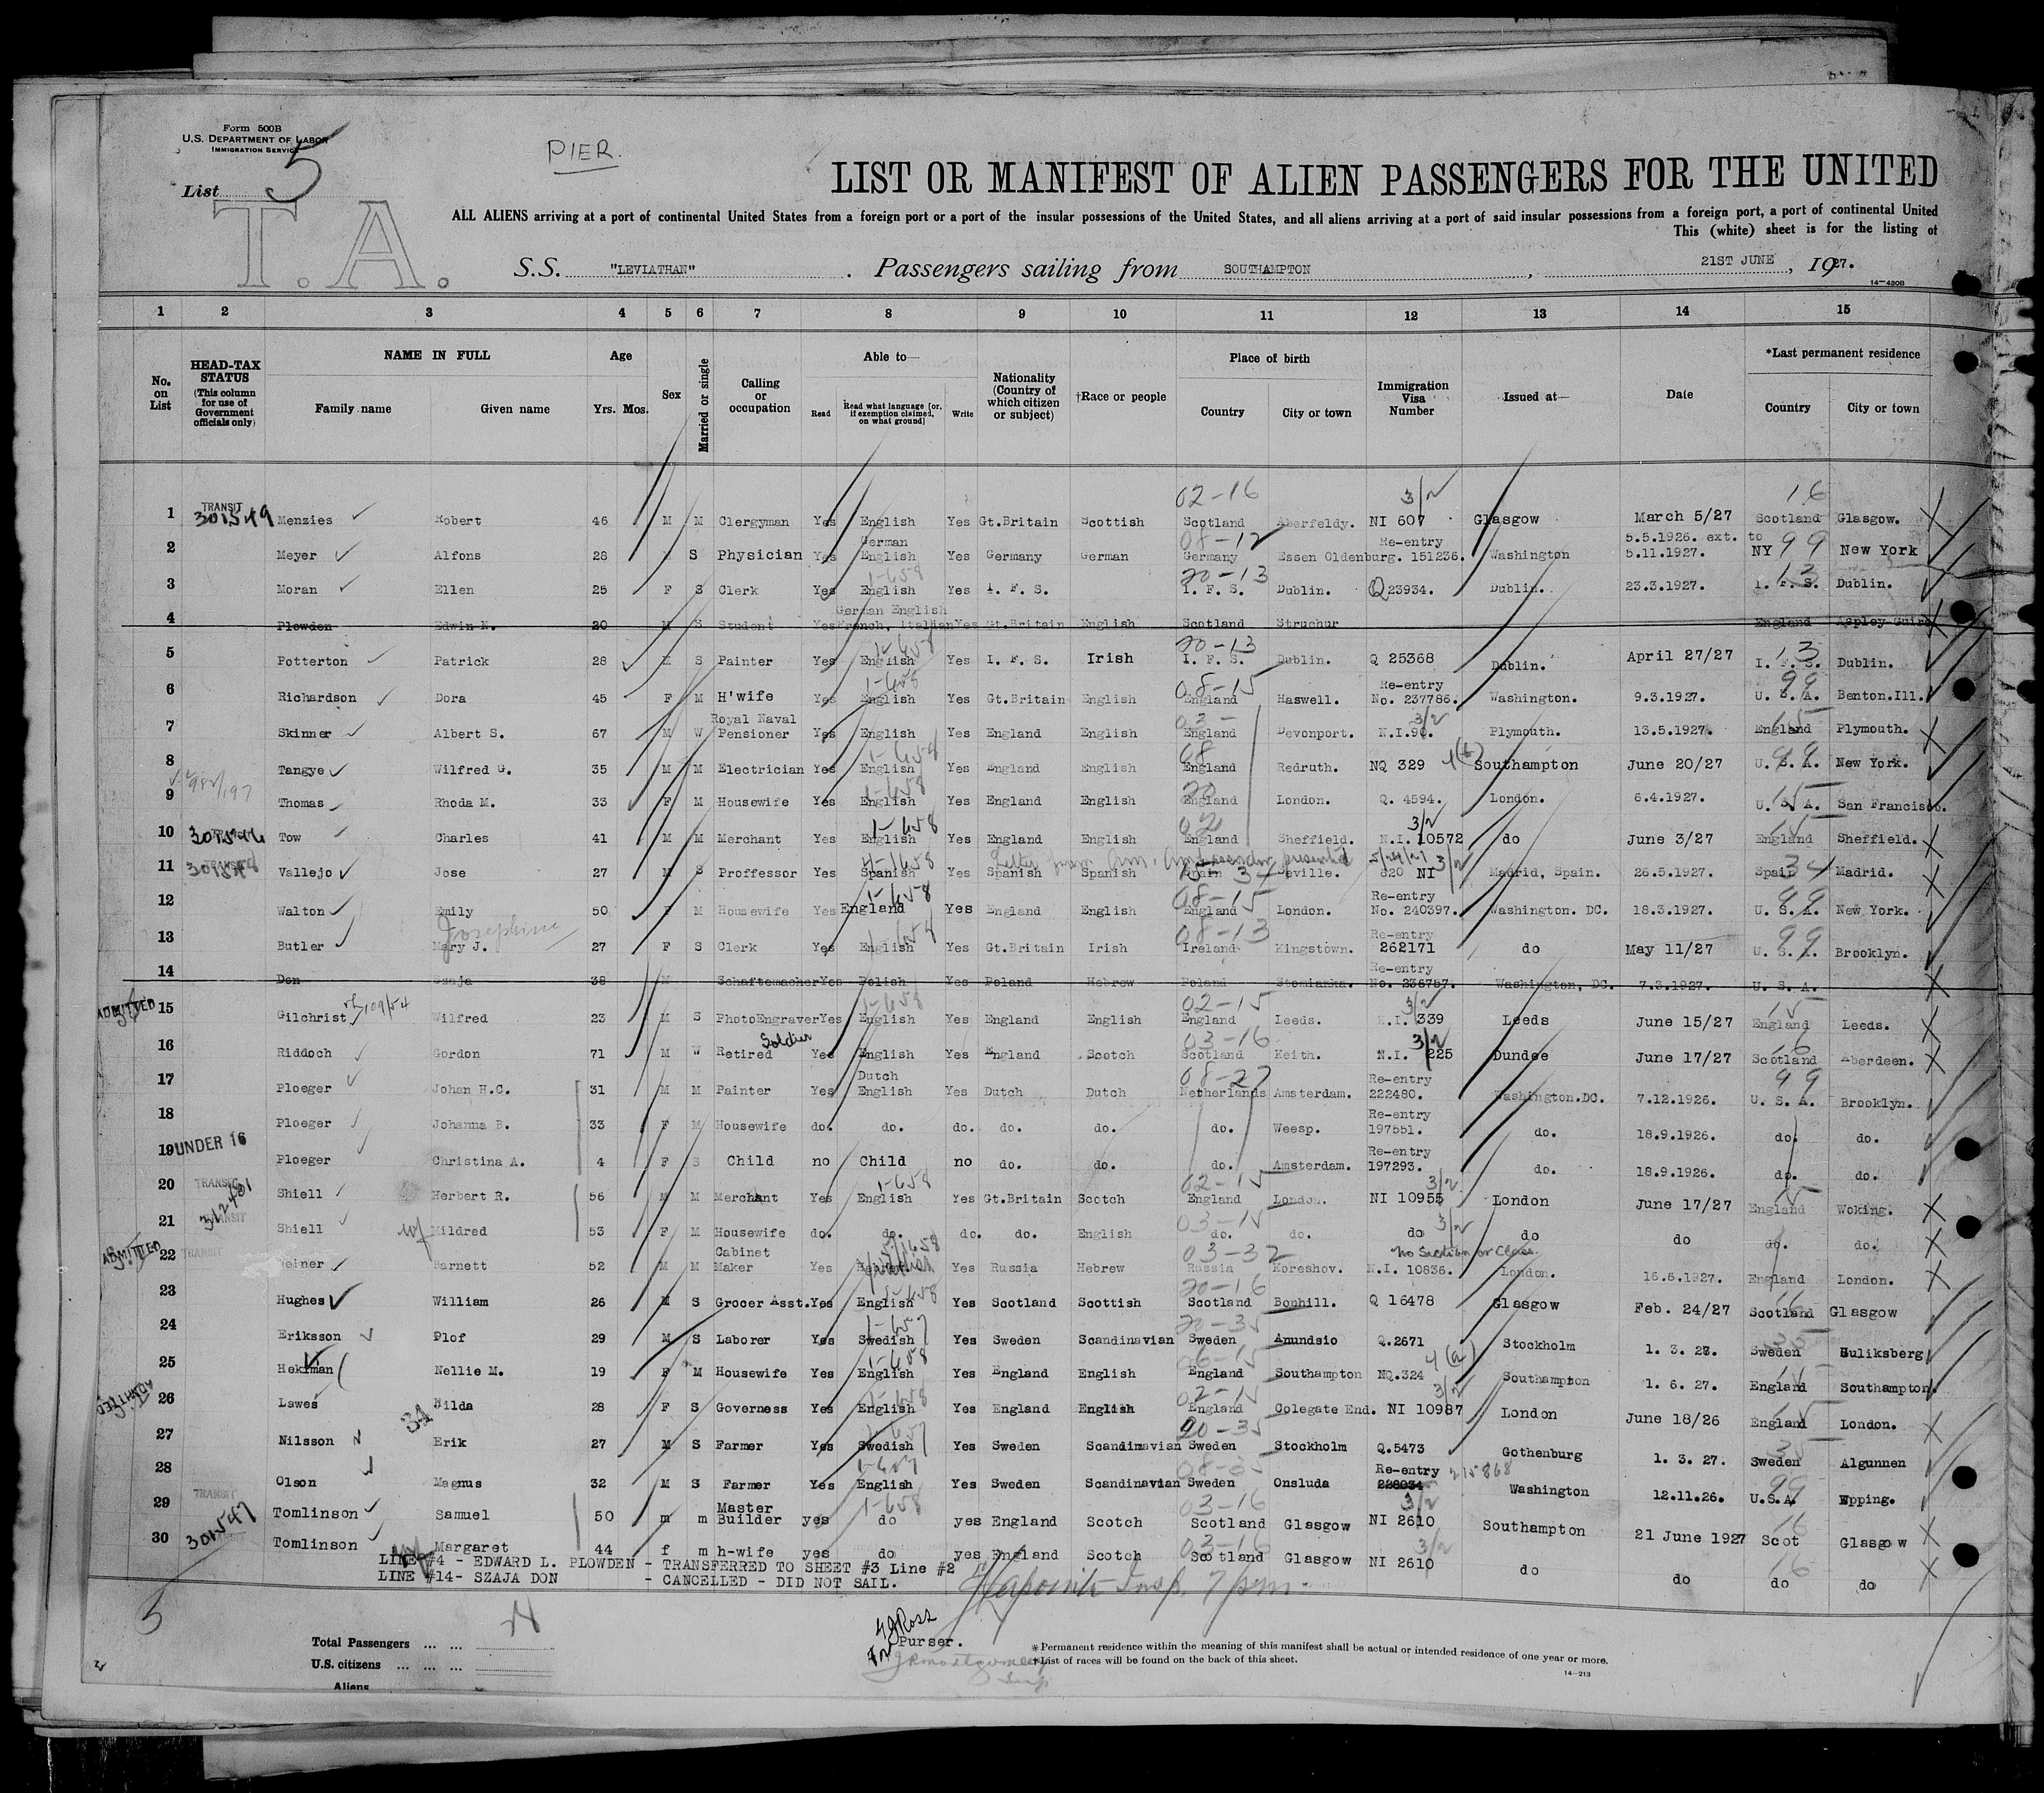 Form 500B
U.S. DEPARTMENT OF LABOR
IMMIGRATION SERVICE
List 5
PIER.
T.A.
LIST OR MANIFEST OF ALIEN PASSENGERS FOR THE UNITED
ALL ALIENS arriving at a port of continental United States from a foreign port or a port of the insular possessions of the United States, and all aliens arriving at a port of said insular possessions from a foreign port, a port of continental United
This (white) sheet is for the listing of
S.S. "LEVIATHAN" . Passengers sailing from SOUTHAMPTON , 21ST JUNE , 1927.
14-430B
1 2 3 4 5 6 7 8 9 10 11 12 13 14 15
No. on List
HEAD-TAX STATUS (This column for use of Government officials only)
NAME IN FULL
Family name Given name
Age
Yrs. Mos.
Sex
Married or single
Calling or occupation
Able to—
Read
Read what language [or, if exemption claimed, on what ground]
Write
Nationality (Country of which citizen or subject)
†Race or people
Place of birth
Country City or town
Immigration Visa Number
Issued at—
Date
*Last permanent residence
Country City or town
02-16 3/2 16
1 TRANSIT 301549 Menzies Robert 46 M M Clergyman Yes English Yes Gt.Britain Scottish Scotland Aberfeldy. NI 607 Glasgow March 5/27 Scotland Glasgow.
2 Meyer Alfons 28 S Physician Yes German English Yes Germany German 08-12 Germany Essen Oldenburg. Re-entry 151236. Washington 5.5.1926. ext. to 5.11.1927. NY 99 New York
3 Moran Ellen 25 F S Clerk Yes 1-658 English Yes I. F. S. 20-13 I. F. S. Dublin. Q 23934. Dublin. 23.3.1927. 13 I. F. S. Dublin.
4 Plowden Edwin N. 20 M S Student Yes German English French, Italian Yes Gt.Britain English Scotland Struchur England Aspley Guire
5 Potterton Patrick 28 M S Painter Yes 1-658 English Yes I. F. S. Irish 20-13 I. F. S. Dublin. Q 25368 Dublin. April 27/27 13 I. F. S. Dublin.
6 Richardson Dora 45 F M H'wife Yes 1-658 English Yes Gt.Britain English 08-15 England Haswell. Re-entry No. 237786. Washington. 9.3.1927. 99 U. S. A. Benton.Ill.
7 Skinner Albert S. 67 M W Royal Naval Pensioner Yes English Yes England English 03- England Devonport. 3/2 N.I.90. Plymouth. 13.5.1927. 15 England Plymouth.
8 Tangye Wilfred G. 35 M M Electrician Yes 1-658 English Yes England English 08 England Redruth. NQ 329 4(b) Southampton June 20/27 99 U. S. A. New York.
9 Thomas Rhoda M. 33 F M Housewife Yes 1-658 English Yes England English 20 England London. Q. 4594. London. 6.4.1927. 15 U. S. A. San Francisco.
10 301546 Tow Charles 41 M M Merchant Yes 1-658 English Yes England English 02 England Sheffield. 3/2 N.I. 10572 do June 3/27 15 England Sheffield.
11 TRANSIT Vallejo Jose 27 M S Proffessor Yes Spanish Yes Spanish Spanish Spain Seville. 620 NI 3/2 Madrid, Spain. 26.5.1927. Spain 34 Madrid.
12 Walton Emily 50 F M Housewife Yes 1-658 England Yes England English 08-15 England London. Re-entry No. 240397. Washington. DC. 18.3.1927. 99 U. S. A. New York.
13 Butler Josephine Mary J. 27 F S Clerk Yes English Yes Gt.Britain Irish 08-13 Ireland Kingstown. Re-entry 262171 do May 11/27 99 U. S. A. Brooklyn.
14 Don Szaja 38 M Schaftemacher Yes Polish Yes Poland Hebrew Poland Stomianka. Re-entry No. 236757. Washington, DC. 7.3.1927. U. S. A.
ADMITTED 15 Gilchrist Wilfred 23 M S PhotoEngraver Yes 1-658 English Yes England English 02-15 England Leeds. 3/2 N.I. 339 Leeds June 15/27 15 England Leeds.
16 Riddoch Gordon 71 M W Retired Soldier Yes English Yes England Scotch 03-16 Scotland Keith. 3/2 N.I. 225 Dundee June 17/27 16 Scotland Aberdeen.
17 Ploeger Johan H.C. 31 M M Painter Yes Dutch English Yes Dutch Dutch 08-27 Netherlands Amsterdam. Re-entry 222480. Washington.DC. 7.12.1926. 99 U. S. A. Brooklyn.
18 Ploeger Johanna B. 33 F M Housewife do. do. do. do. do. do. Weesp. Re-entry 197551. do. 18.9.1926. do. do.
19 UNDER 16 Ploeger Christina A. 4 F S Child no Child no do. do. do. Amsterdam. Re-entry 197293. do. 18.9.1926. do. do.
20 TRANSIT Shiell Herbert R. 56 M M Merchant Yes 1-658 English Yes Gt.Britain Scotch 02-15 England London. 3/2 NI 10955 London June 17/27 15 England Woking.
21 TRANSIT Shiell wf Mildred 53 F M Housewife do. do. do. do. English 03-15 do. do. 3/2 do do do do. do.
ADMITTED 22 TRANSIT Weiner Barnett 52 M M Cabinet Maker Yes Yes Russia Hebrew 03-32 Russia Koreshov. No Section or Class. N.I. 10836. London. 15.6.1927. England London.
23 Hughes William 26 M S Grocer Asst. Yes English Yes Scotland Scottish 20-16 Scotland Bonhill. Q 16478 Glasgow Feb. 24/27 16 Scotland Glasgow
24 Eriksson Plof 29 M S Laborer Yes 1-657 Swedish Yes Sweden Scandinavian 20-35 Sweden Anundsio Q.2671 Stockholm 1. 3. 27. 35 Sweden Huliksberg
25 Hekman Nellie M. 19 F M Housewife Yes 1-658 English Yes England English 06-15 England Southampton NQ.324 4(a) Southampton 1. 6. 27. 15 England Southampton.
ADMITTED 26 Lawes Hilda 28 F S Governess Yes 1-658 English Yes England English 02-15 England Colegate End. 3/2 NI 10987 London June 18/26 15 England London.
27 Nilsson Erik 27 M S Farmer Yes 1-657 Swedish Yes Sweden Scandinavian 20-35 Sweden Stockholm Q.5473 Gothenburg 1. 3. 27. 35 Sweden Algunnen
28 Olson Magnus 32 M S Farmer Yes 1-657 English Yes Sweden Scandinavian 08-35 Sweden Onsluda Re-entry 215868 Washington 12.11.26. 99 U.S.A. Epping.
29 TRANSIT Tomlinson Samuel 50 m m Master Builder yes 1-658 do yes England Scotch 03-16 Scotland Glasgow 3/2 NI 2610 Southampton 21 June 1927 16 Scot Glasgow
30 301547 Tomlinson wf Margaret 44 f m h-wife yes do yes England Scotch 03-16 Scotland Glasgow 3/2 NI 2610 do do 16 do do
LINE #4 - EDWARD L. PLOWDEN - TRANSFERRED TO SHEET #3 Line #2
LINE #14- SZAJA DON - CANCELLED - DID NOT SAIL.
Insp. 7 pm.
5
Total Passengers ... ...
U.S. citizens ... ... ...
Aliens
Ross
Purser.
*Permanent residence within the meaning of this manifest shall be actual or intended residence of one year or more.
†List of races will be found on the back of this sheet.
14-213